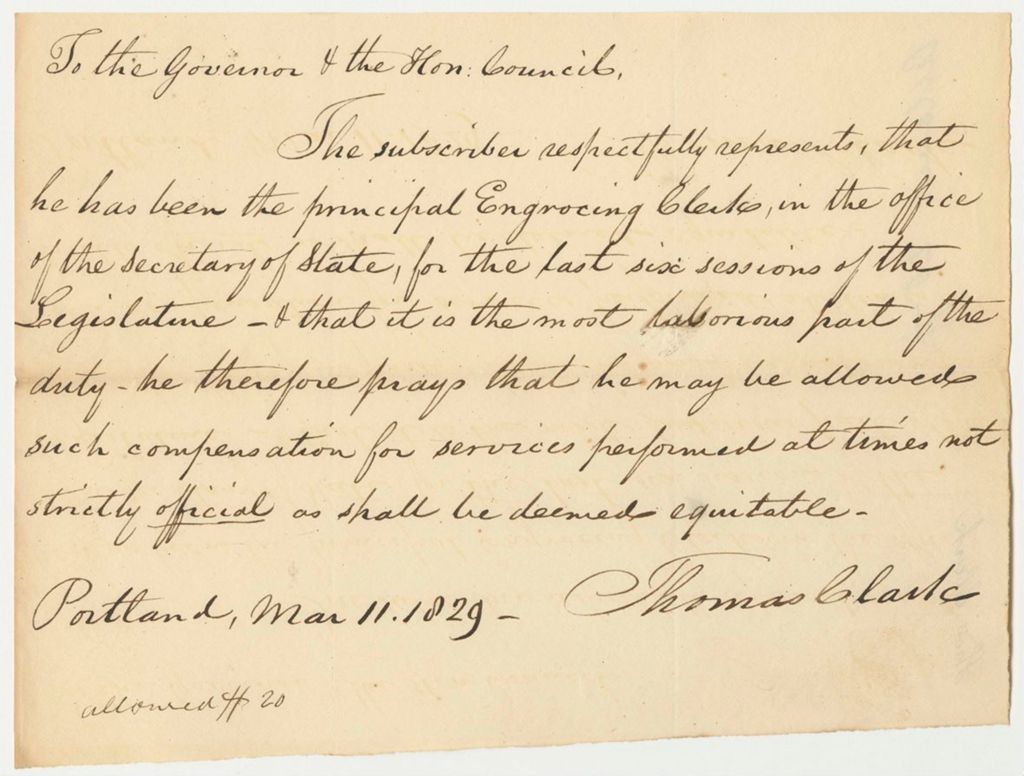 To the Governor & the Hon: Council,
The subscriber respectfully represents, that
he has been the principal Engrocing Clerk, in the office
of the secretary of State, for the last six sessions of the
Legislature - & that it is the most laborious part of the
duty - he therefore prays that he may be allowed
such compensation for services performed at times not
strictly official as shall be deemed equitable -
Portland, Mar 11. 1829 -
Thomas Clark
allowed $ 20